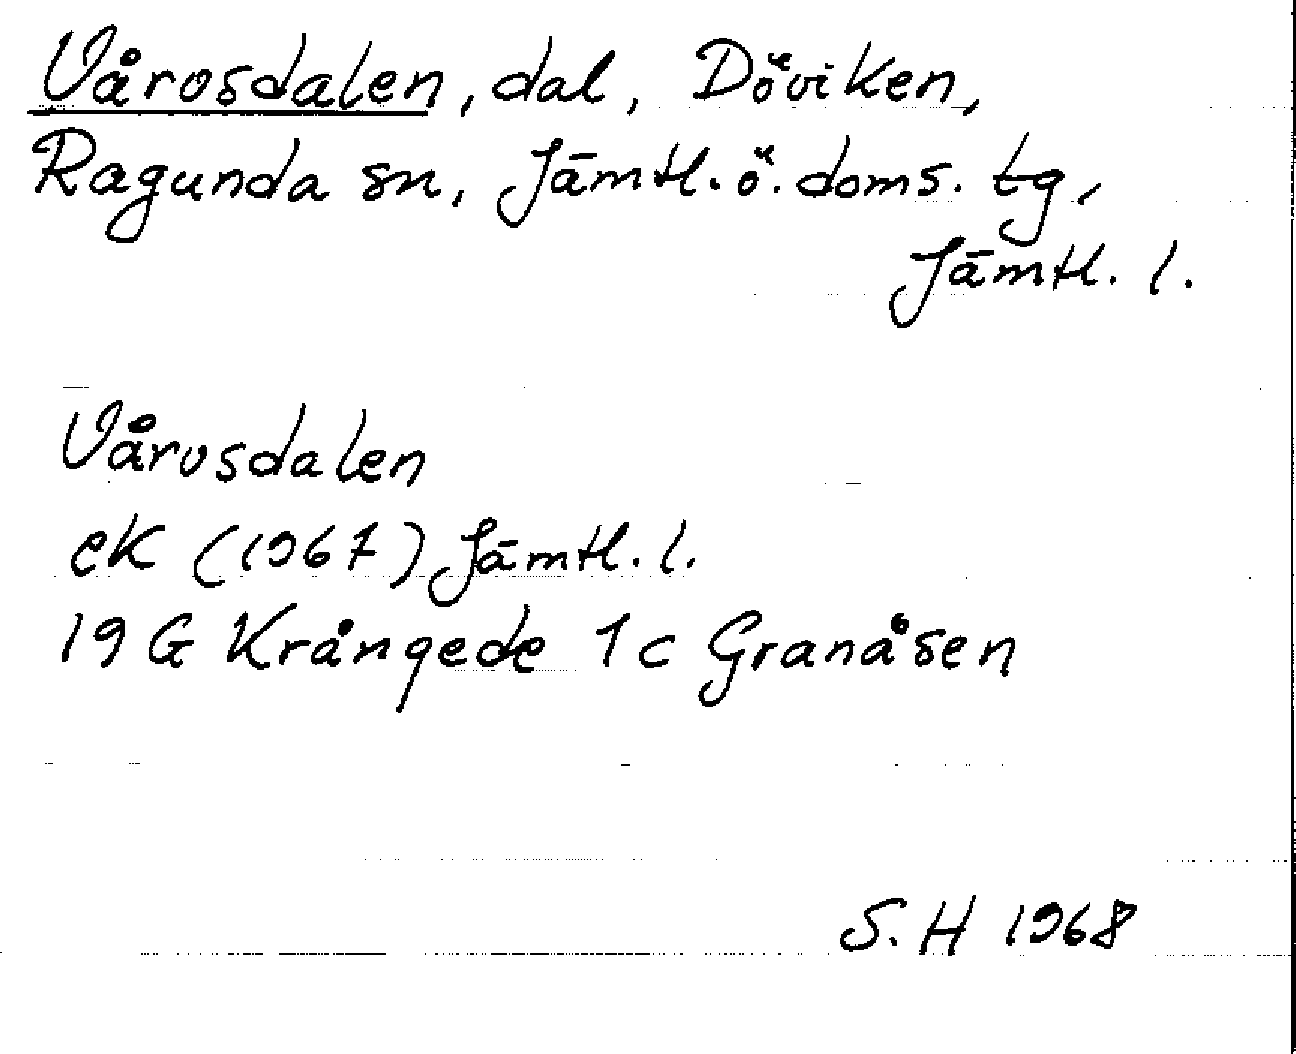 Vårosdalen, dal, Döviken,
Ragunda sn, Jämtl. ö. doms. tg,
Jämtl. l.
Vårosdalen
ek (1967) Jämtl. l.
19 G Krångede 1c Granåsen
S. H 1968